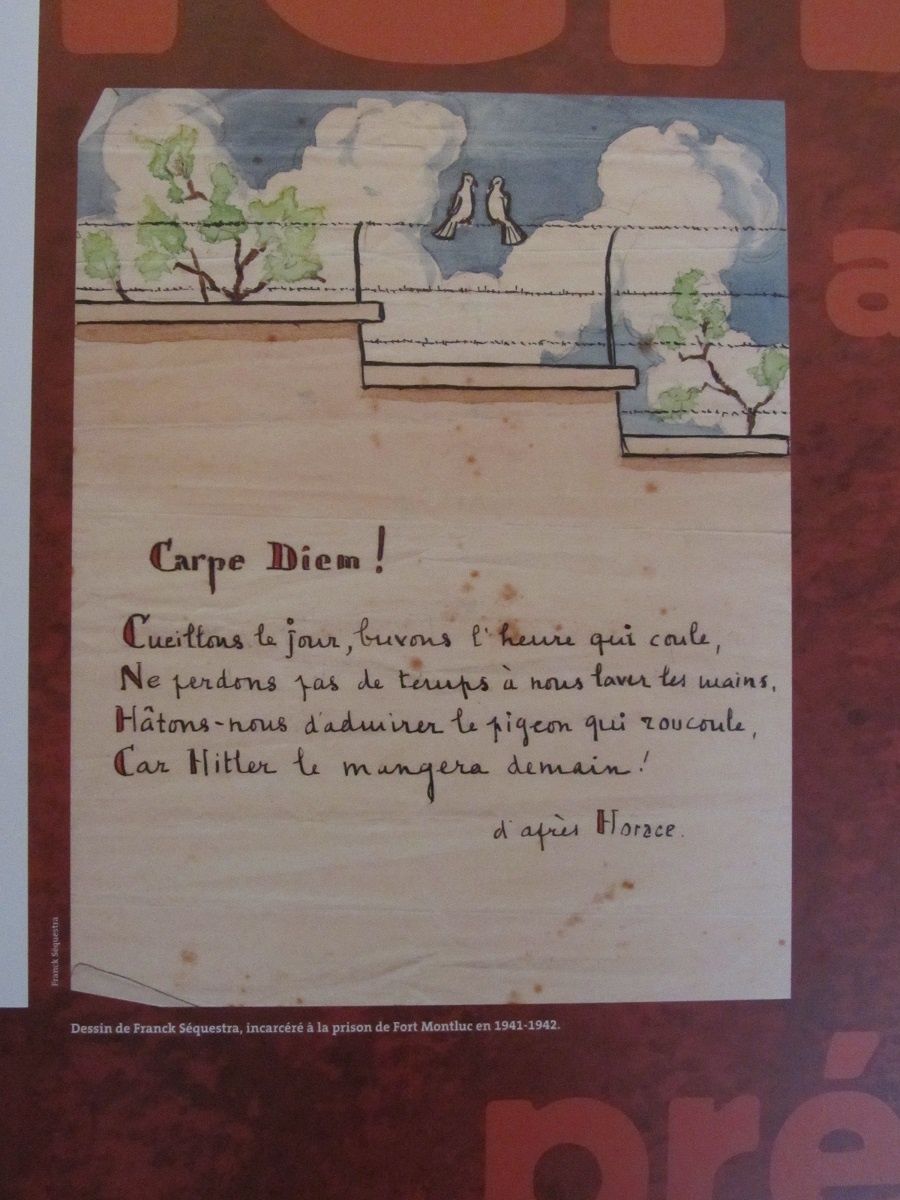 Carpe Diem !
Cueillons le jour, buvons l'heure qui coule,
Ne perdons pas de temps à nous laver les mains,
Hâtons-nous d'admirer le pigeon qui roucoule,
Car Hitler le mangera demain !
d'après Horace.
Franck Séquestra
Dessin de Franck Séquestra, incarcéré à la prison de Fort Montluc en 1941-1942.
a
pré